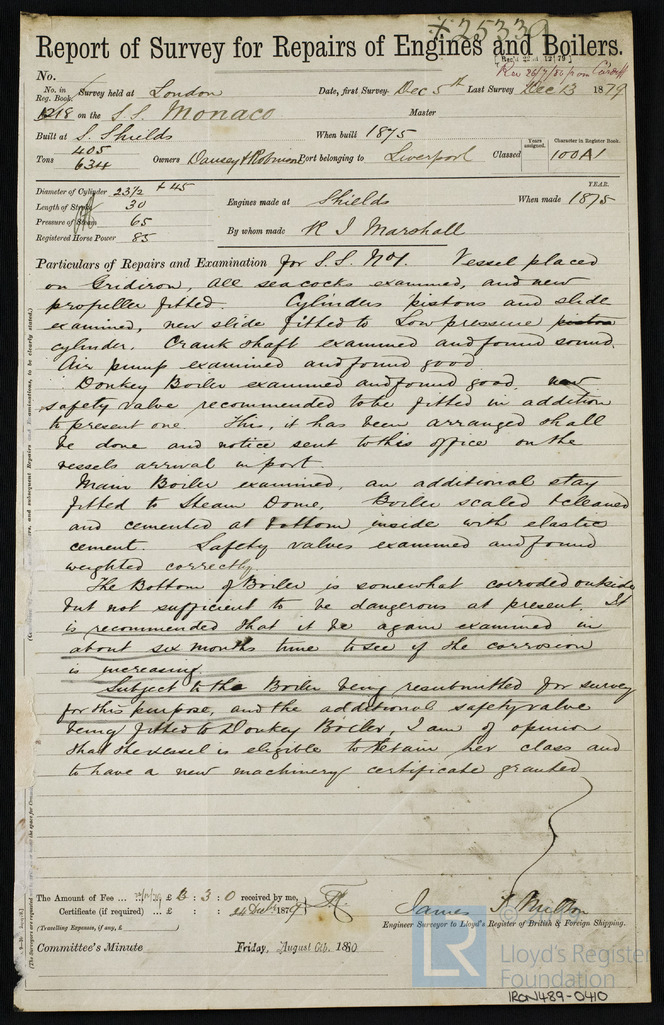 * 25339
Report of Survey for Repairs of Engines and Boilers.
Rec 26/7/80 from Cardiff
No.
No. in Reg. Book. Survey held at London Date, first Survey Dec 5th Last Survey Dec 13 1879
1218 on the S.S. Monaco Master
Built at S. Shields When built 1875
Tons 405 634 Owners Port belonging to Liverpool Classed Years assigned. Character in Register Book. 100A1
Diameter of Cylinder 23½ + 45
Length of Stroke 30
Pressure of Steam 65
Registered Horse Power 85
Engines made at Shields When made YEAR. 1875
By whom made R I Marshall
Particulars of Repairs and Examination for S.S. No1. Vessel placed
on Gridiron, all sea cocks examined, and new
propeller fitted. Cylinders pistons and slide
examined, new slide fitted to Low pressure piston
cylinder. Crank shaft examined and found sound.
Air pump examined and found good.
Donkey Boiler examined and found good. new
safety valve recommended to be fitted in addition
to present one. This, it has been arranged shall
be done and notice sent to this office on the
vessels arrival in port.
Main Boiler examined, an additional stay
fitted to Steam Dome, Boiler scaled & cleaned
and cemented at bottom inside with elastic
cement. Safety valves examined and found
weighted correctly.
The Bottom of Boiler is somewhat corroded outside
but not sufficient to be dangerous at present. It
is recommended that it be again examined in
about six months time to see if the corrosion
is increasing.
Subject to the Boiler being resubmitted for survey
for this purpose, and the additional safety valve
being fitted to Donkey Boiler, I am of opinion
that the vessel is eligible to retain her class and
to have a new machinery certificate granted
The Amount of Fee ... £ 3 : 0 received by me,
Certificate (if required) ... £ : : 24 Dec 1879
(Travelling Expenses, if any, £ )
James T. Milton
Engineer Surveyor to Lloyd's Register of British & Foreign Shipping.
Committee's Minute Friday, August 6th. 1880
LR
© Lloyd's Register
Foundation
IRON489-0410